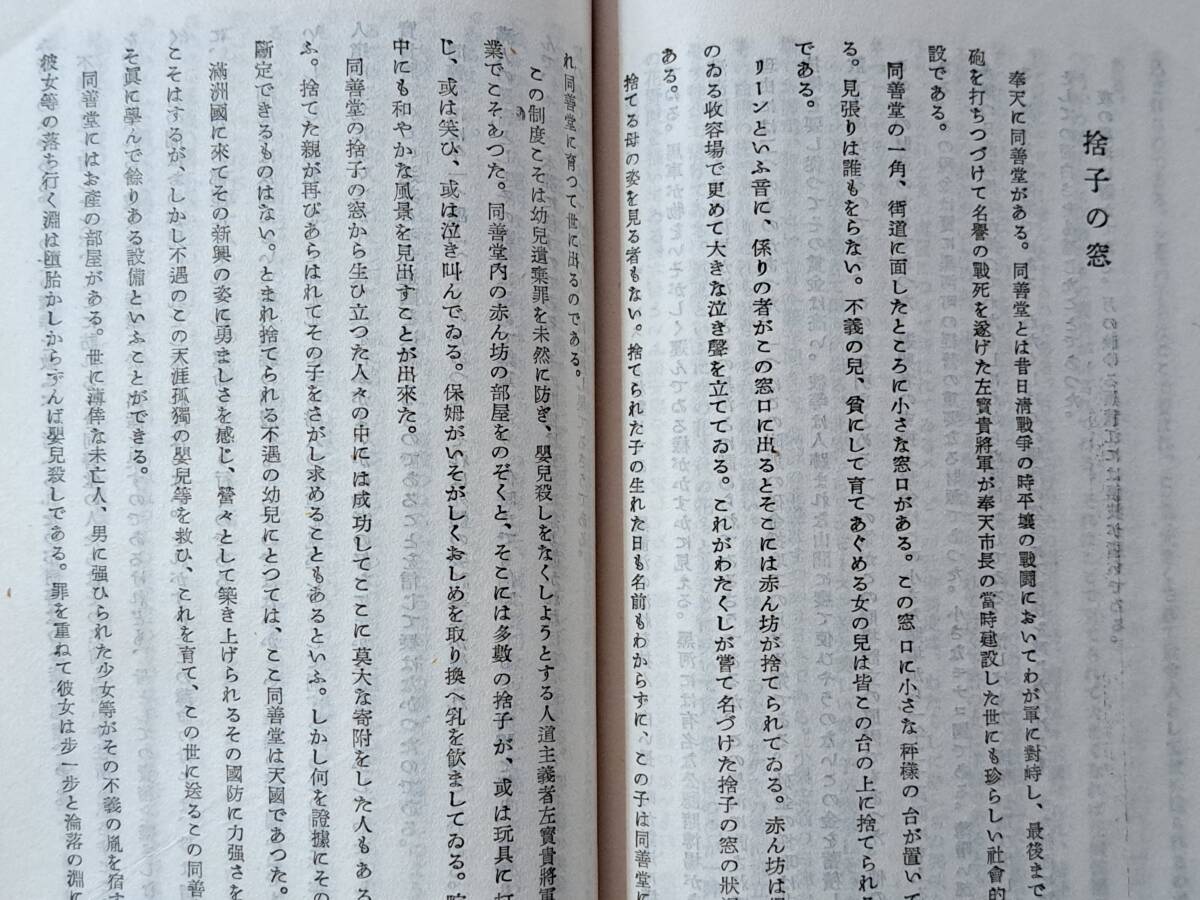 捨子の窓
奉天に同善堂がある。同善堂とは昔日清戰爭の時平壤の戰鬪においてわが軍に對峙し、最後まで
砲を打ちつづけて名譽の戰死を遂げた左寶貴將軍が奉天市長の當時建設した世にも珍らしい社會的
設である。
同善堂の一角、街道に面したところに小さな窓口がある。この窓口に小さな秤樣の台が置いて
る。見張りは誰もをらない。不義の兒、貧にして育てあぐめる女の兒は皆この台の上に捨てられる
である。
リーンといふ音に、係りの者がこの窓口に出るとそこには赤ん坊が捨てられてゐる。赤ん坊は
のゐる收容場で更めて大きな泣き聲を立ててゐる。これがわたくしが嘗て名づけた捨子の窓の狀
ある。
捨てる母の姿を見る者もない。捨てられた子の生れた日も名前もわからずに、この子は同善堂に
れ同善堂に育つて世に出るのである。
この制度こそは幼兒遺棄罪を未然に防ぎ、嬰兒殺しをなくしようとする人道主義者左寶貴將軍
業でこそあつた。同善堂内の赤ん坊の部屋をのぞくと、そこには多數の捨子が、或は玩具に打
し、或は笑ひ、或は泣き叫んでゐる。保姆がいそがしくおしめを取り換へ乳を飲ましてゐる。
中にも和やかな風景を見出すことが出來た。
同善堂の捨子の窓から生ひ立つた人々の中には成功してここに莫大な寄附をした人もある
ふ。捨てた親が再びあらはれてその子をさがし求めることもあるといふ。しかし何を證據にその
斷定できるものはない。とまれ捨てられる不遇の幼兒にとつては、ここ同善堂は天國であつた。
滿洲國に來てその新興の姿に勇ましさを感じ、營々として築き上げられるその國防に力强さを
こそはするが、しかし不遇のこの天涯孤獨の嬰兒等を救ひ、これを育て、この世に送るこの同善
そ眞に學んで餘りある設備といふことができる。
同善堂にはお產の部屋がある。世に薄倖な未亡人、男に强ひられた少女等がその不義の胤を宿す
彼女等の落ち行く淵は墮胎かしからずんば嬰兒殺しである。罪を重ねて彼女は步一步と淪落の淵に